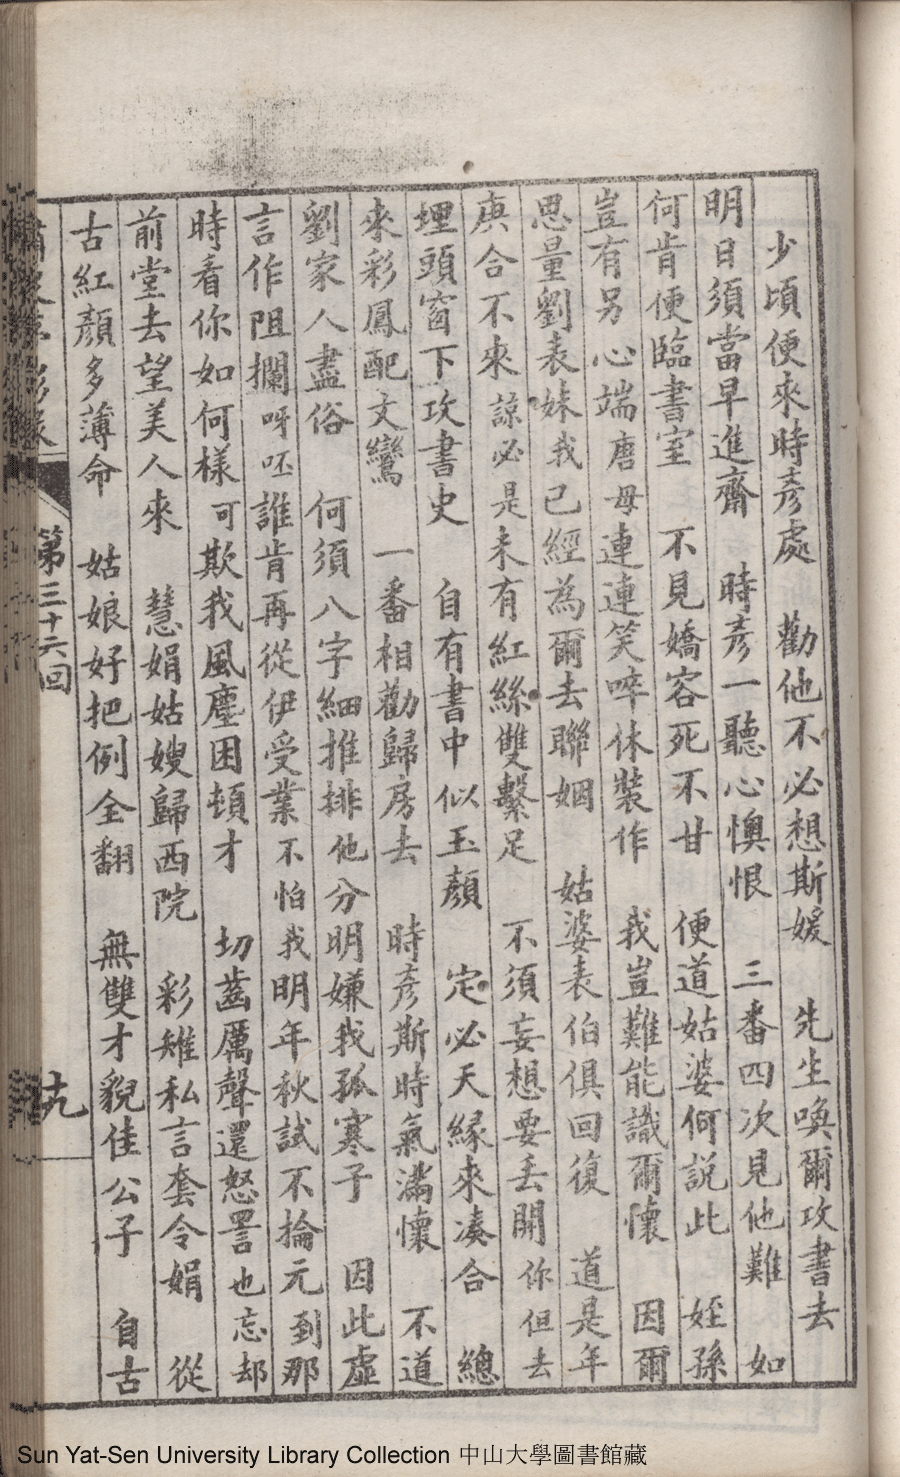 少頃便來時彥處　勸他不必想斯媛　先生喚爾攻書去
明日須當早進齋　時彥一聽心懊恨　三番四次見他難　如
何肯便臨書室　不見嬌容死不甘　便道姑婆何説此　姪孫
豈有另心端唐母連連笑啐休裝作　我豈難能識爾懷　因爾
思量劉表妹我已經為爾去聯姻　姑婆表伯俱回復　道是年
庚合不來諒必是未有紅絲雙繫足　不須妄想要丟開你但去
埋頭窗下攻書史　自有書中似玉顏　定必天緣來凑合　總
來彩鳳配文鸞　一番相勸歸房去　時彥斯時氣滿懷　不道
劉家人盡俗　何須八字細推排他分明嫌我孤寒子　因此虛
言作阻攔呀呸誰肯再從伊受業不怕我明年秋試不掄元到那
時看你如何樣可欺我風塵困頓才　切齒厲聲還怒詈也忘却
前堂去望美人來　慧娟姑嫂歸西院　彩雉私言套令娟　從
古紅顏多薄命　姑娘好把例全翻　無雙才貌佳公子　自古
第三十六回
十九
Sun Yat-Sen University Library Collection 中山大學圖書館藏